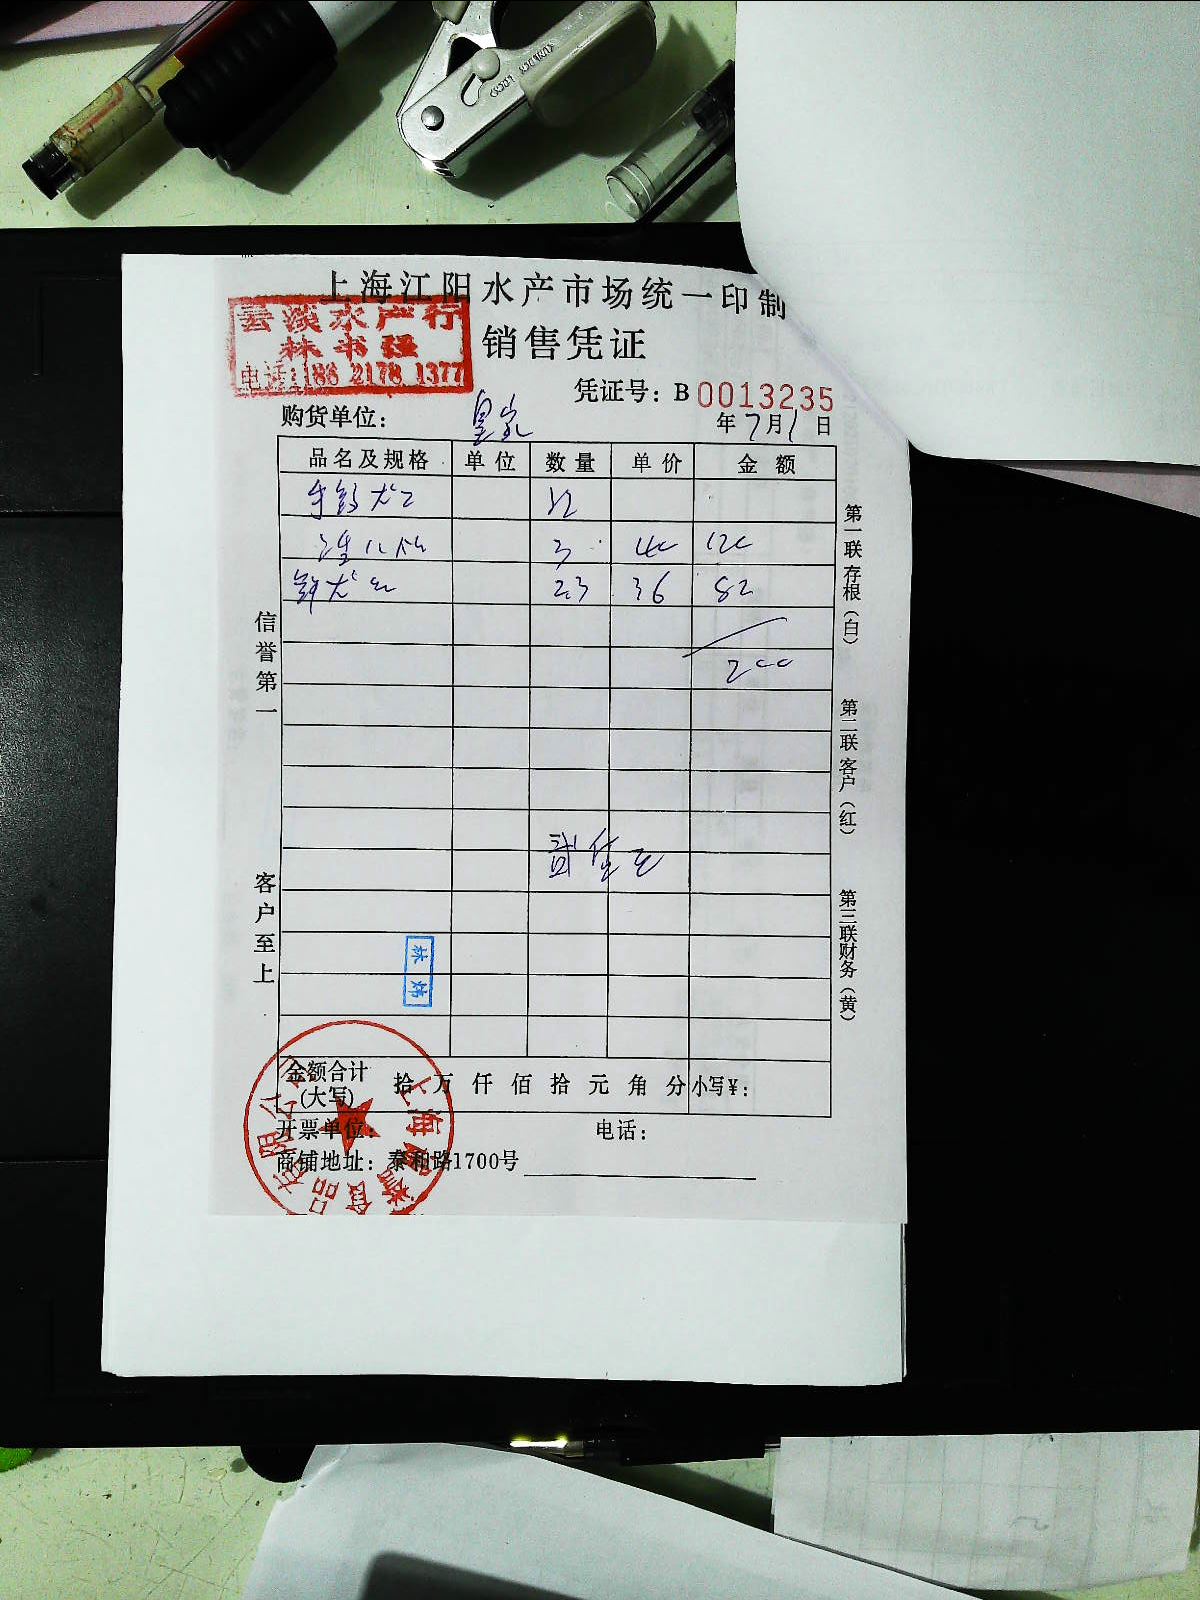 上海江阳水产市场统一印制
云淡水产行
林书强
电话:186 2178 1377
销售凭证
凭证号: B 0013235
购货单位: 皇家
年 7月1日
品名及规格 单位 数量 单价 金额
3 40 120
2.3 36 82
200
贰佰元
信誉第一
客户至上
第一联存根(白)
第二联客户(红)
第三联财务(黄)
林炜
金额合计(大写) 拾 万 仟 佰 拾 元 角 分 小写¥:
开票单位: 电话:
商铺地址: 泰和路1700号